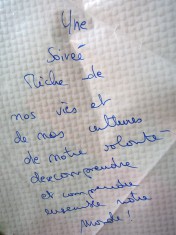 Une
Soirée
Riche de
nos vies et
de nos cultures
de notre volonté
de comprendre
et comprendre
ensemble notre
Monde !